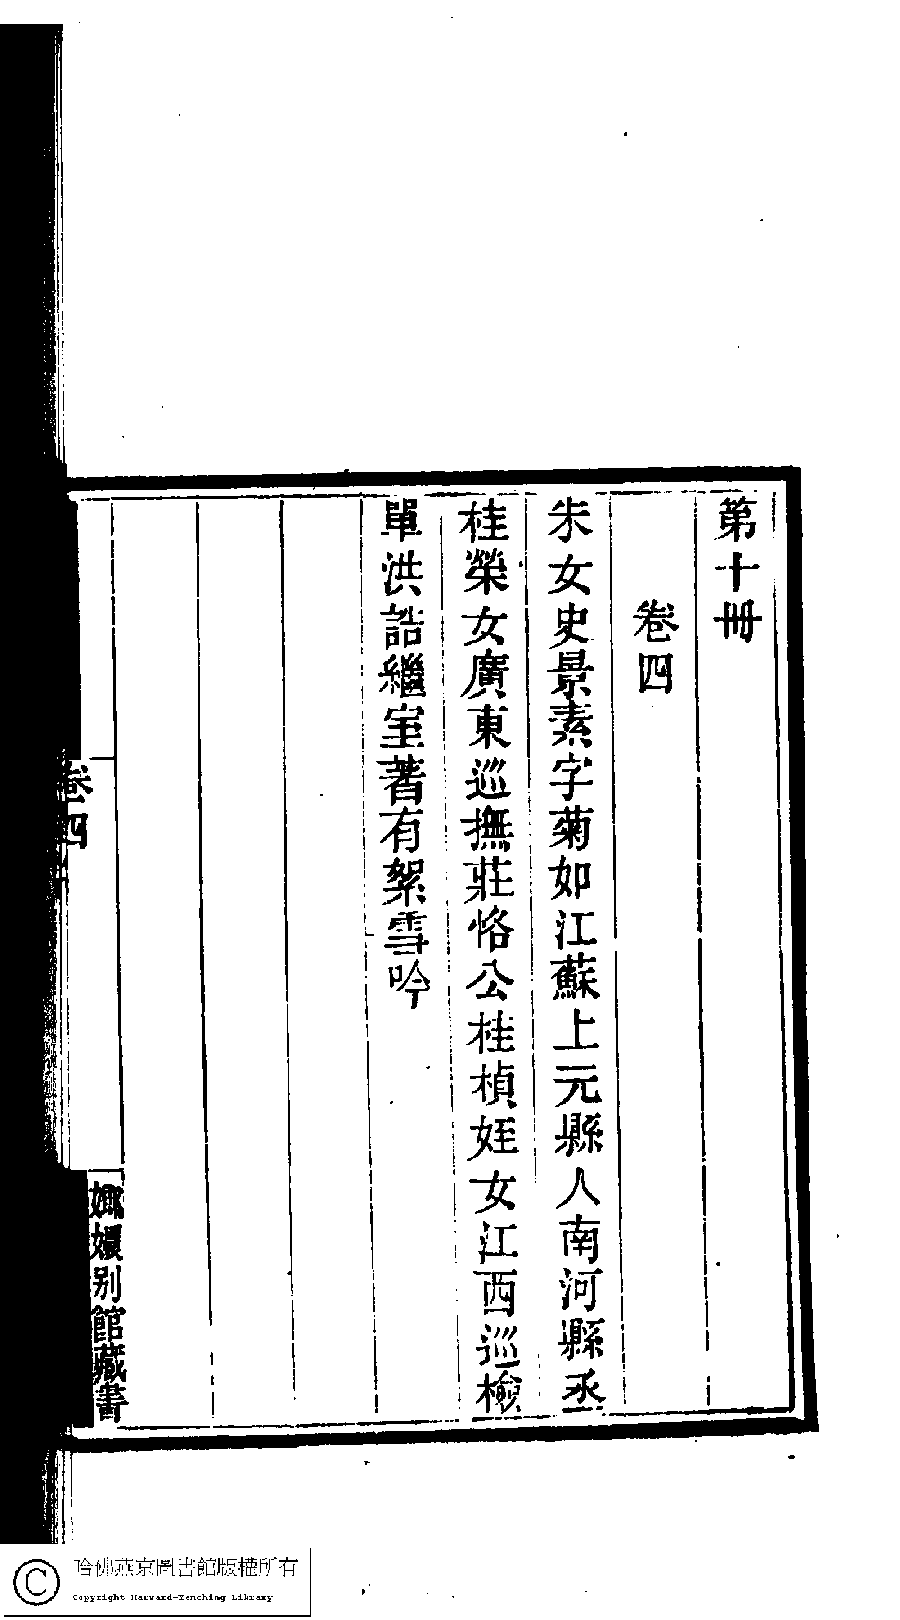 第十冊
卷四
朱女史景素字菊如江蘇上元縣人南河縣丞
桂榮女廣東巡撫莊恪公桂楨姪女江西巡檢
單洪誥繼室著有絮雪吟
卷四
嫏嬛別館藏書
哈佛燕京圖書館版權所有
Copyright Harvard-Yenching Library